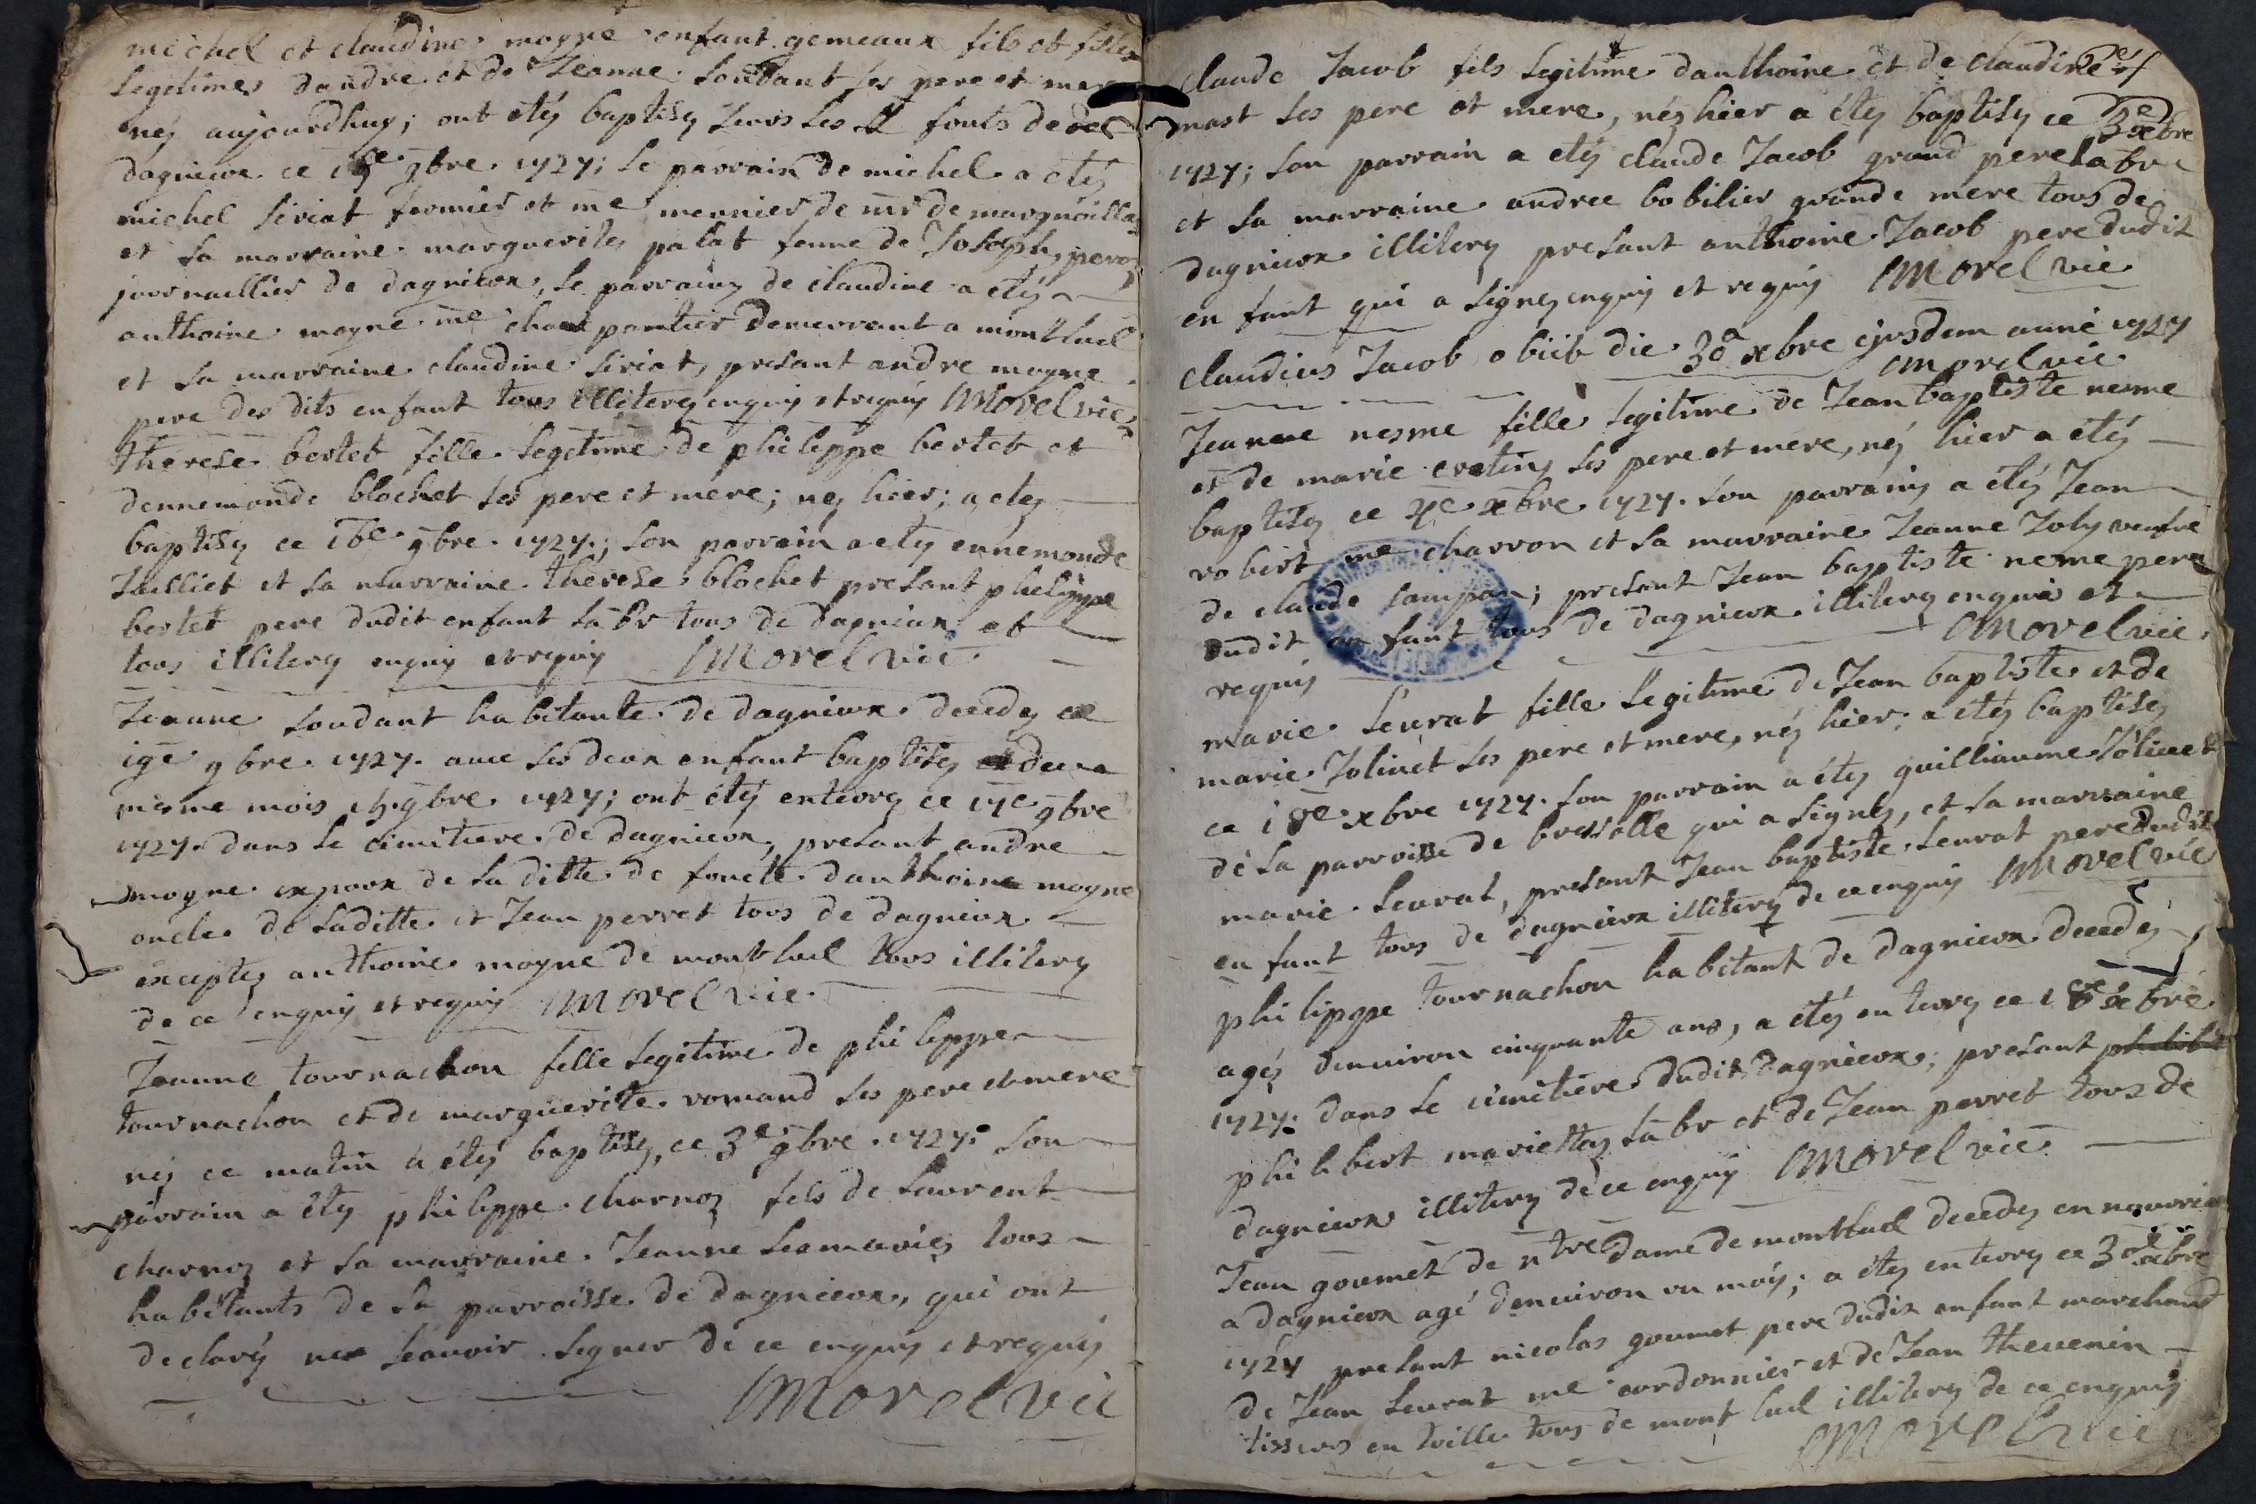 michel et claudine moyne enfant gemeaux fils et filles
legitimes dandre et de Jeanne soudant ses pere et mere
néz aujourdhuy; ont etéz baptisez sur les fonts de
dagnieux ce gbre 1727; le parrain de michel a etéz
michel siriat fermier et me meunier de mr de margnoillas
et sa marraine marguerites palat femme de Joseph peroz
journaillier de dagnieux, le parrainz de claudine a etéz
anthoine moyne me charpantier demeurant a montluel
et sa marraine claudine siriat, presant andre moyne
pere des dits enfant tous illiterez enquis et requis Morel vic
therese bertet fille legetime de phileppe bertet et
dennemonde blochet ses pere et mere; nez hier; a etez
baptisez ce 16e gbre 1727; son parrain a etez ennemonde
Juilliet et sa marraine therese blochet presant pheligype
bertet pere dudit enfant labr tous de dagnieux et
tous illiterez enquis et requis Morel vic
Jeanne soudant habitante de dagnieux decedez ce
ige gbre 1727 avec ses deux enfant baptisez
mesme mois gbre 1727; ont étéz enterrez ce 17e gbre
1727 dans le cimitiere de dagnieux, presant andre
moyne expoux de la ditte de foncte danthoine moyne
oncle de laditte et Jean perret tous de dagnieux
exceptez anthoine moyne de montluel tous illiterez
de ce enquis et requis Morel vic
Jeanne tournachon fille legitime de phileppe
tournachon et de marguerite romand ses pere et mere
néz ce matin a étéz baptisez, ce 3e gbre 1727 son
parrain a étéz phileppe charnoz fils de laurent
charnoz et sa marraine Jeanne lesmariez tous
habitants de la parroisse de dagnieux, qui ont
declaréz ne scauoir segner de ce enquis et requis
Morel vic
Claude Jacob fils legitime danthoine et de claudine
mast ses pere et mere, néz hier a étéz baptisez ce 3e xbre
1727; son parrain a etéz claude Jacob grand pere labr
et sa marraine andree bobilier grande mere tous de
dagnieux illiterez presant anthoine Jacob pere dudit
enfant qui a signez enquis et requis Morel vic
claudius Jacob obiit die 30a xbre ejusdem anni 1727
Morel vic
Jeanne nesme fille legitime de Jean baptiste nesme
et de marie ses pere et mere, néz hier a etéz
baptisez ce xbre 1727 son parrainz a etéz Jean
robert me charron et sa marraine Jeanne Joly veufve
de claude sampan; presant Jean baptiste nesme pere
dudit enfant tous de dagnieux illiterez enquis et
requis Morel vic
marie seurat fille legitime de Jean baptiste et de
marie Jolivet ses pere et mere, néz hier a étéz baptisez
ce xbre 1727 son parrain a étéz guilliaume Jolivet
de la parroisse de bressolle qui a signez, et sa marraine
marie seurat, presant Jean baptiste seurat pere dudit
enfant tous de dagnieux illiterez de ce enquis Morel vic
philipppe tournachon habitant de dagnieux decedéz
agéz denuiron cinquante ans, a étéz enterrez ce xbre
1727 dans le cimitiere dudit dagnieux; presant
philibert mariettaz labr et de Jean perret tous de
dagnieux illiterez de ce enquis Morel vic
Jean goumet de ntre dame de montluel decedez en nourrice
a dagnieux agé denuiron un moy; a étéz enterrez ce 30e xbre
1727 presant nicolas goumet pere dudit enfant marchand
de Jean seurat me cordonnier et de Jean thevenin
tisseur en toille tous de montluel illiterez de ce enquis
Morel vic